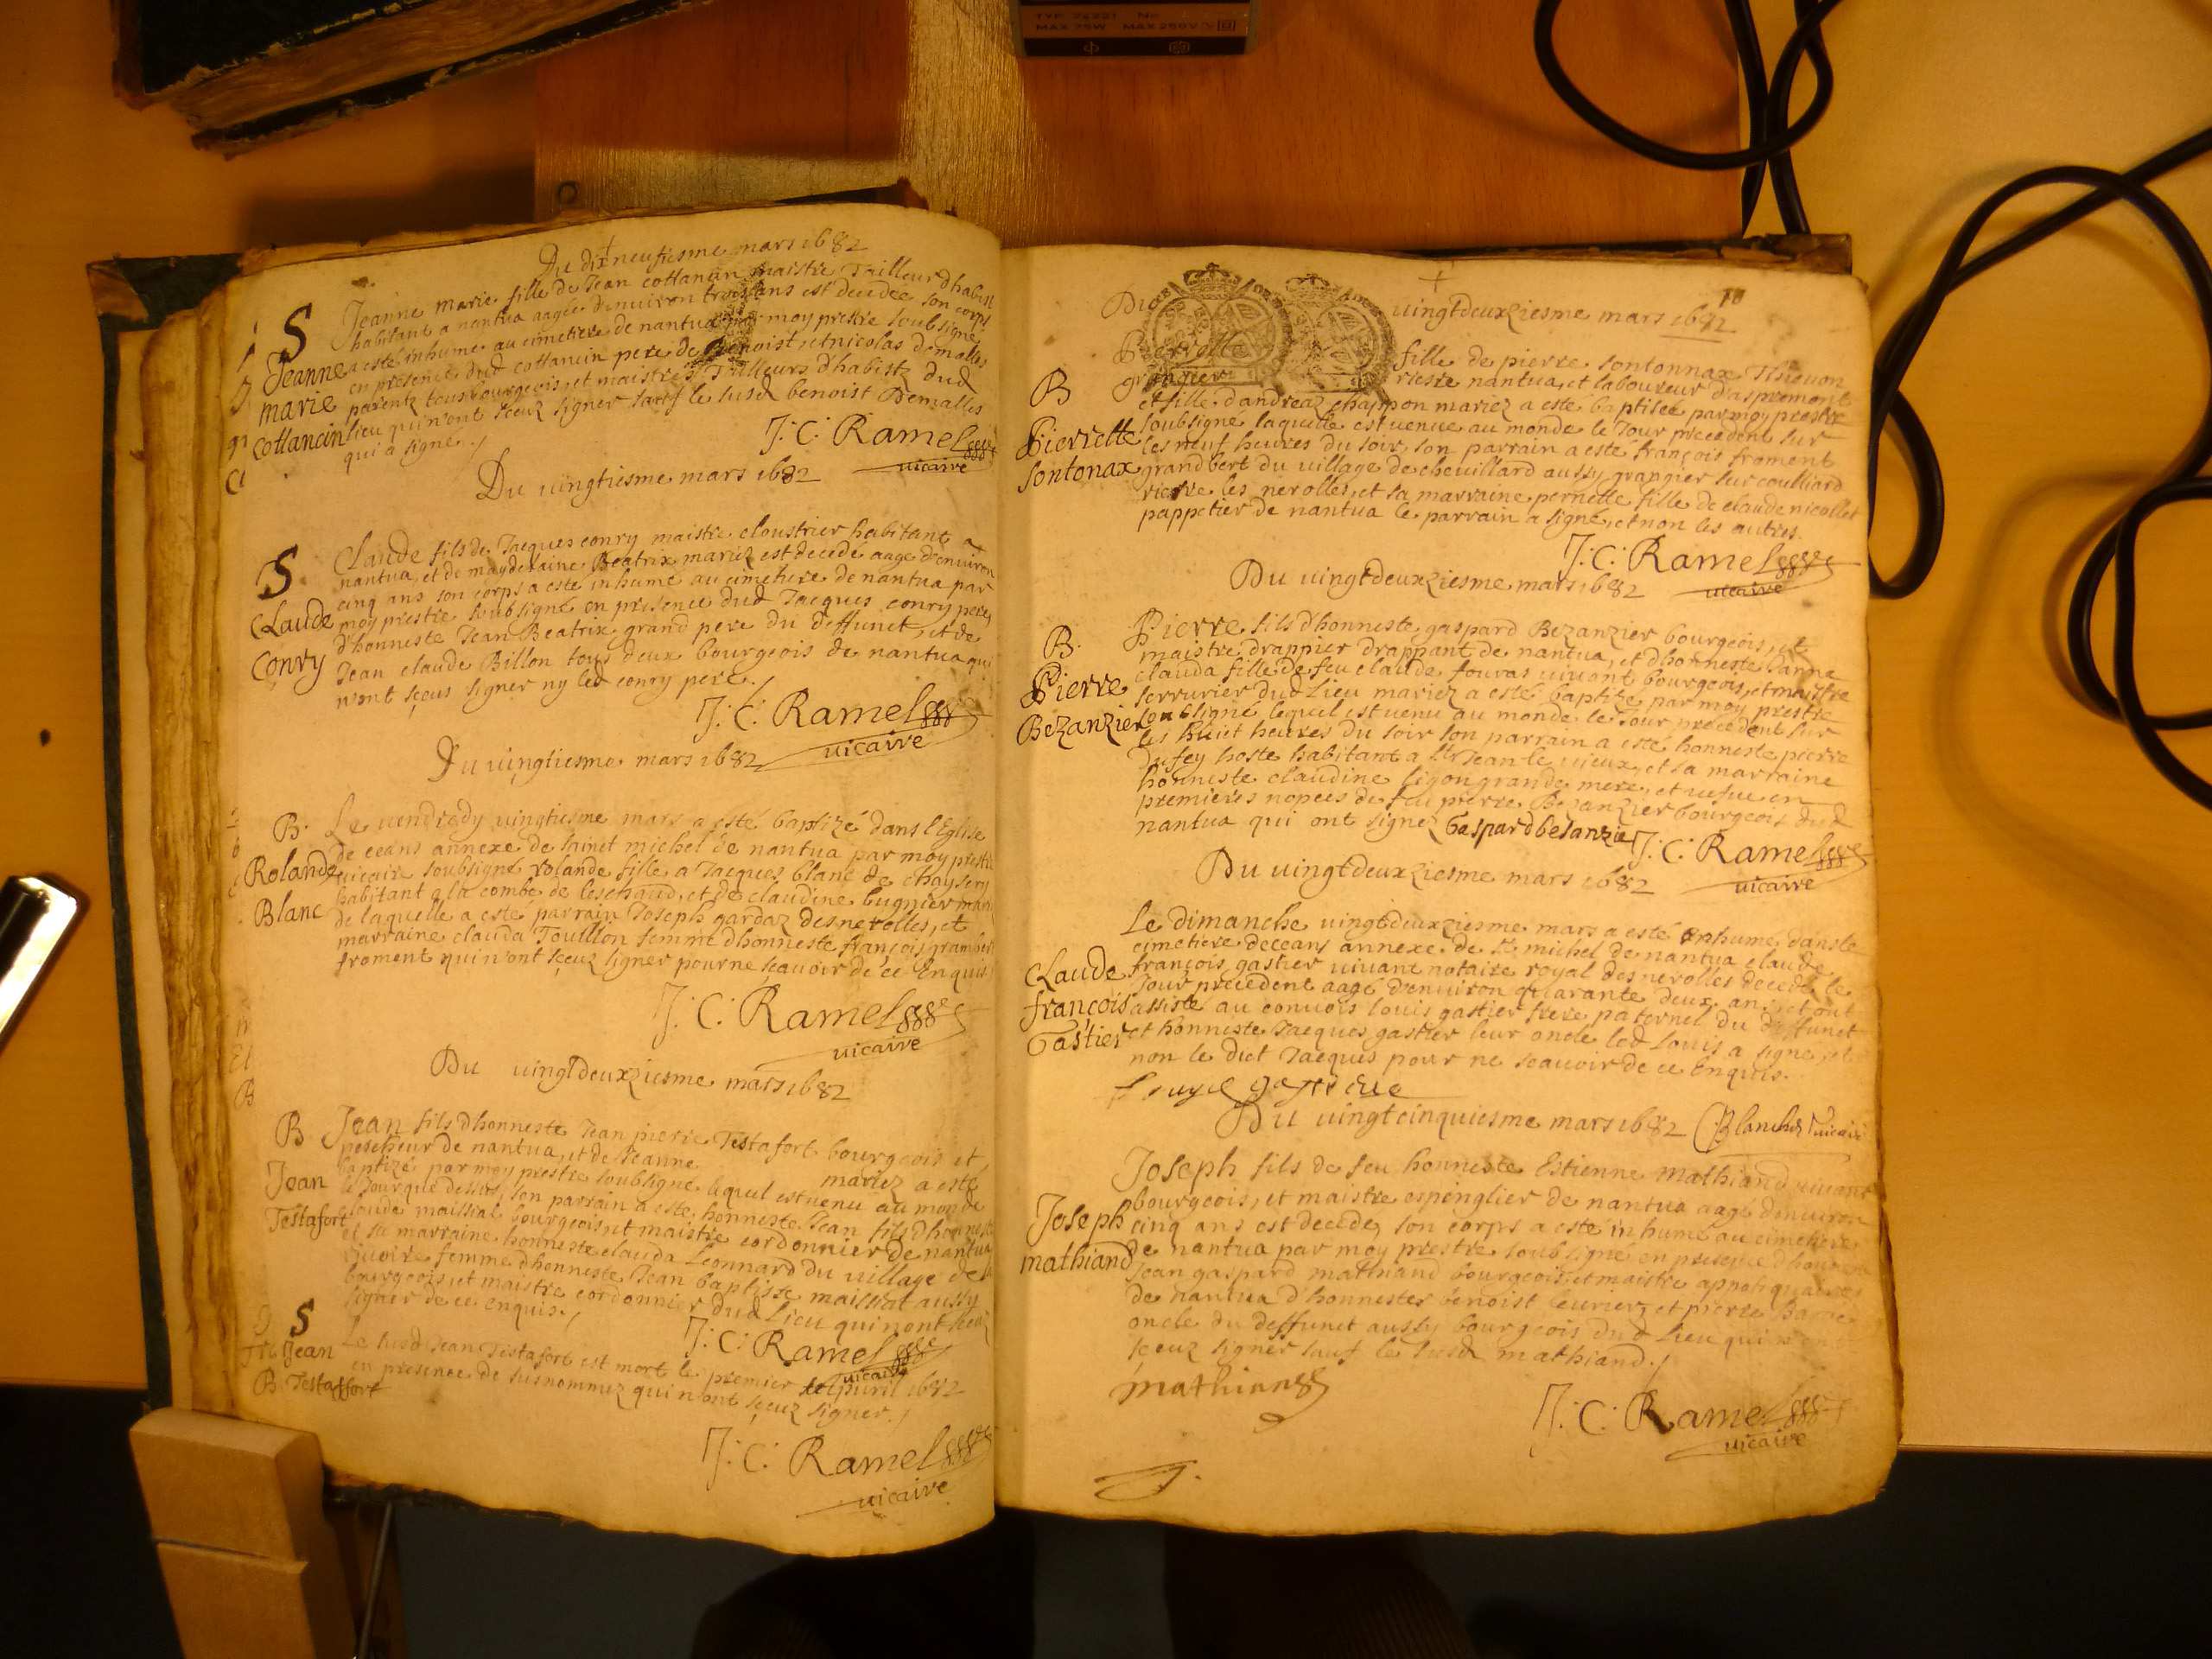 TYP 22321 No
MAX 75W MAX 250V
Du dixneufiesme mars 1682
S
Jeanne marie cottancin
Jeanne Marie fille de Jean cottancin maistre Tailleur d'habist
habitant a nantua aagée d'enuiron trois ans est decedée son corps
a esté inhumé au cimetiere de nantua par moy prestre soubsigné
en presence dud cottancin pere de Benoist, et nicolas demalles
parentz tous bourgeois, et maistres Tailleurs d'habistz dud
lieu qui n'ont sceuz signer sauf le susd benoist Demalles
qui a signé./
J: C: Ramel
uicaire
Du uingtiesme mars 1682
S
Claude Conry
Claude fils de Jacques conry maistre cloustrier habitant a
nantua, et de magdelaine Beatrix mariez est decedé aagé d'enuiron
cinq ans son corps a esté inhumé au cimetiere de nantua par
moy prestre soubsigné en presence dud Jacques conry pere,
d'honneste Jean Beatrix grand pere du deffunct, et de
Jean claude Billon tous deux bourgeois de nantua qui
n'ont sçeus signer ny led conry pere./
J: C: Ramel
uicaire
Du uingtiesme mars 1682
B.
Rolande Blanc
Le uendredy uingtiesme mars a esté baptizé dans l'Eglise
de ceans annexe de sainct michel de nantua par moy prestre
uicaire soubsigné rolande fille a Jacques blanc de chaysery
habitant a la combe de leschaud, et de claudine bugnier mariez
de laquelle a esté parrain Joseph gardaz des nerolles, et
marraine clauda Touillon femme d'honneste françois grambert
froment qui n'ont sçeuz signer pour ne scauoir de ce Enquis
J: C: Ramel
uicaire
Du uingtdeuxziesme mars 1682
B
Jean Testafort
Jean fils d'honneste Jean pierre Testafort bourgeois et
pescheur de nantua, et de Jeanne mariez a esté
baptizé par moy prestre soubsigné lequel est uenu au monde
le Jour que dessus, son parrain a esté honneste Jean fils d'honneste
claude maissiat bourgeois et maistre cordonnier de nantua
et sa marraine honneste clauda Leonnard du uillage de
riuoire femme d'honneste Jean baptiste maissiat aussy
bourgeois, et maistre cordonnier dud Lieu qui n'ont sceuz
signer de ce enquis./
J: C: Ramel
uicaire
S
Jean Testaffort
Le susd Jean Testafort est mort le premier apuril 1682
en presence de susnommez qui n'ont sçeuz signer./
J: C: Ramel
uicaire
Du uingtdeuxziesme mars 1682
B
Pierrette sontonax
Pierrette fille de pierre sontonnax
grangier riere nantua, et laboureur d'aspremont
et fille d'andreaz chappon mariez a esté baptisée par moy prestre
soubsigné laquelle est uenue au monde le Jour precedent sur
les neuf heures du soir, son parrain a esté françois froment
grandbert du uillage de cheuillard aussy grangier sur coulliard
riere les nerolles, et sa marraine pernette fille de claude nicollet
pappetier de nantua le parrain a signé, et non les autres.
J: C: Ramel
uicaire
Du uingtdeuxziesme mars 1682
B.
Pierre Bezanzier
Pierre fils d'honneste gaspard Bezanzier bourgeois, et
maistre drappier drappant de nantua, et d'honneste Janne
clauda fille de feu claude fouras uiuant bourgeois, et maistre
serrurier dud Lieu mariez a esté baptizé par moy prestre
soubsigné lequel est uenu au monde le Jour precedent sur
les huict heures du soir son parrain a esté honneste pierre
dufey hoste habitant a st Jean le uieux, et sa marraine
honneste claudine ligon grande mere, et uefue en
premieres nopces de feu pierre Bezanzier bourgeois dud
nantua qui ont signez Gaspard besanzie J: C: Ramel
uicaire
Du uingtdeuxziesme mars 1682
Claude françois Gastier
Le dimanche uingtdeuxziesme mars a esté Enhumé dans le
cimetiere deceans annexe de st michel de nantua claude
françois gastier uiuant notaire royal des nerolles decedé le
Jour precedent aagé d'enuiron quarante deux ans, et ont
assisté au conuois louis gastier frere paternel du deffunct
et honneste Jacques gastier leur oncle led Louis a signe, et
non le dict Jacques pour ne scauoir de ce Enquis.
Du uingtcinquiesme mars 1682 Blanchet uicaire
Joseph mathiand
Joseph fils de feu honneste Estienne mathiand uiuant
bourgeois, et maistre espinglier de nantua aagé d'enuiron
cinq ans est decedé, son corps a esté inhumé au cimetiere
de nantua par moy prestre soubsigné en presence d'honneste
Jean gaspard mathiand bourgeois, et maistre appotiquaire
de nantua d'honnestes benoist leurier, et pierre
oncle du deffunct aussy bourgeois dud Lieu qui n'ont
sçeuz signer sauf le susd mathiand./
mathiand
J: C: Ramel
uicaire